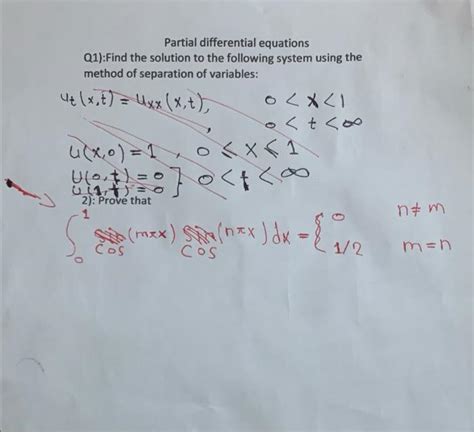 Partial differential equations
Q1):Find the solution to the following system using the
method of separation of variables:
u_t(x,t) = u_xx(x,t), 0 < x < 1
, 0 < t < ∞
u(x,0) = 1 , 0 ≤ x ≤ 1
u(0,t) = 0 } 0 < t < ∞
u(1,t) = 0
2): Prove that
∫₀¹ sin (mπx) sin (nπx) dx = { 0 n ≠ m
cos cos 1/2 m = n